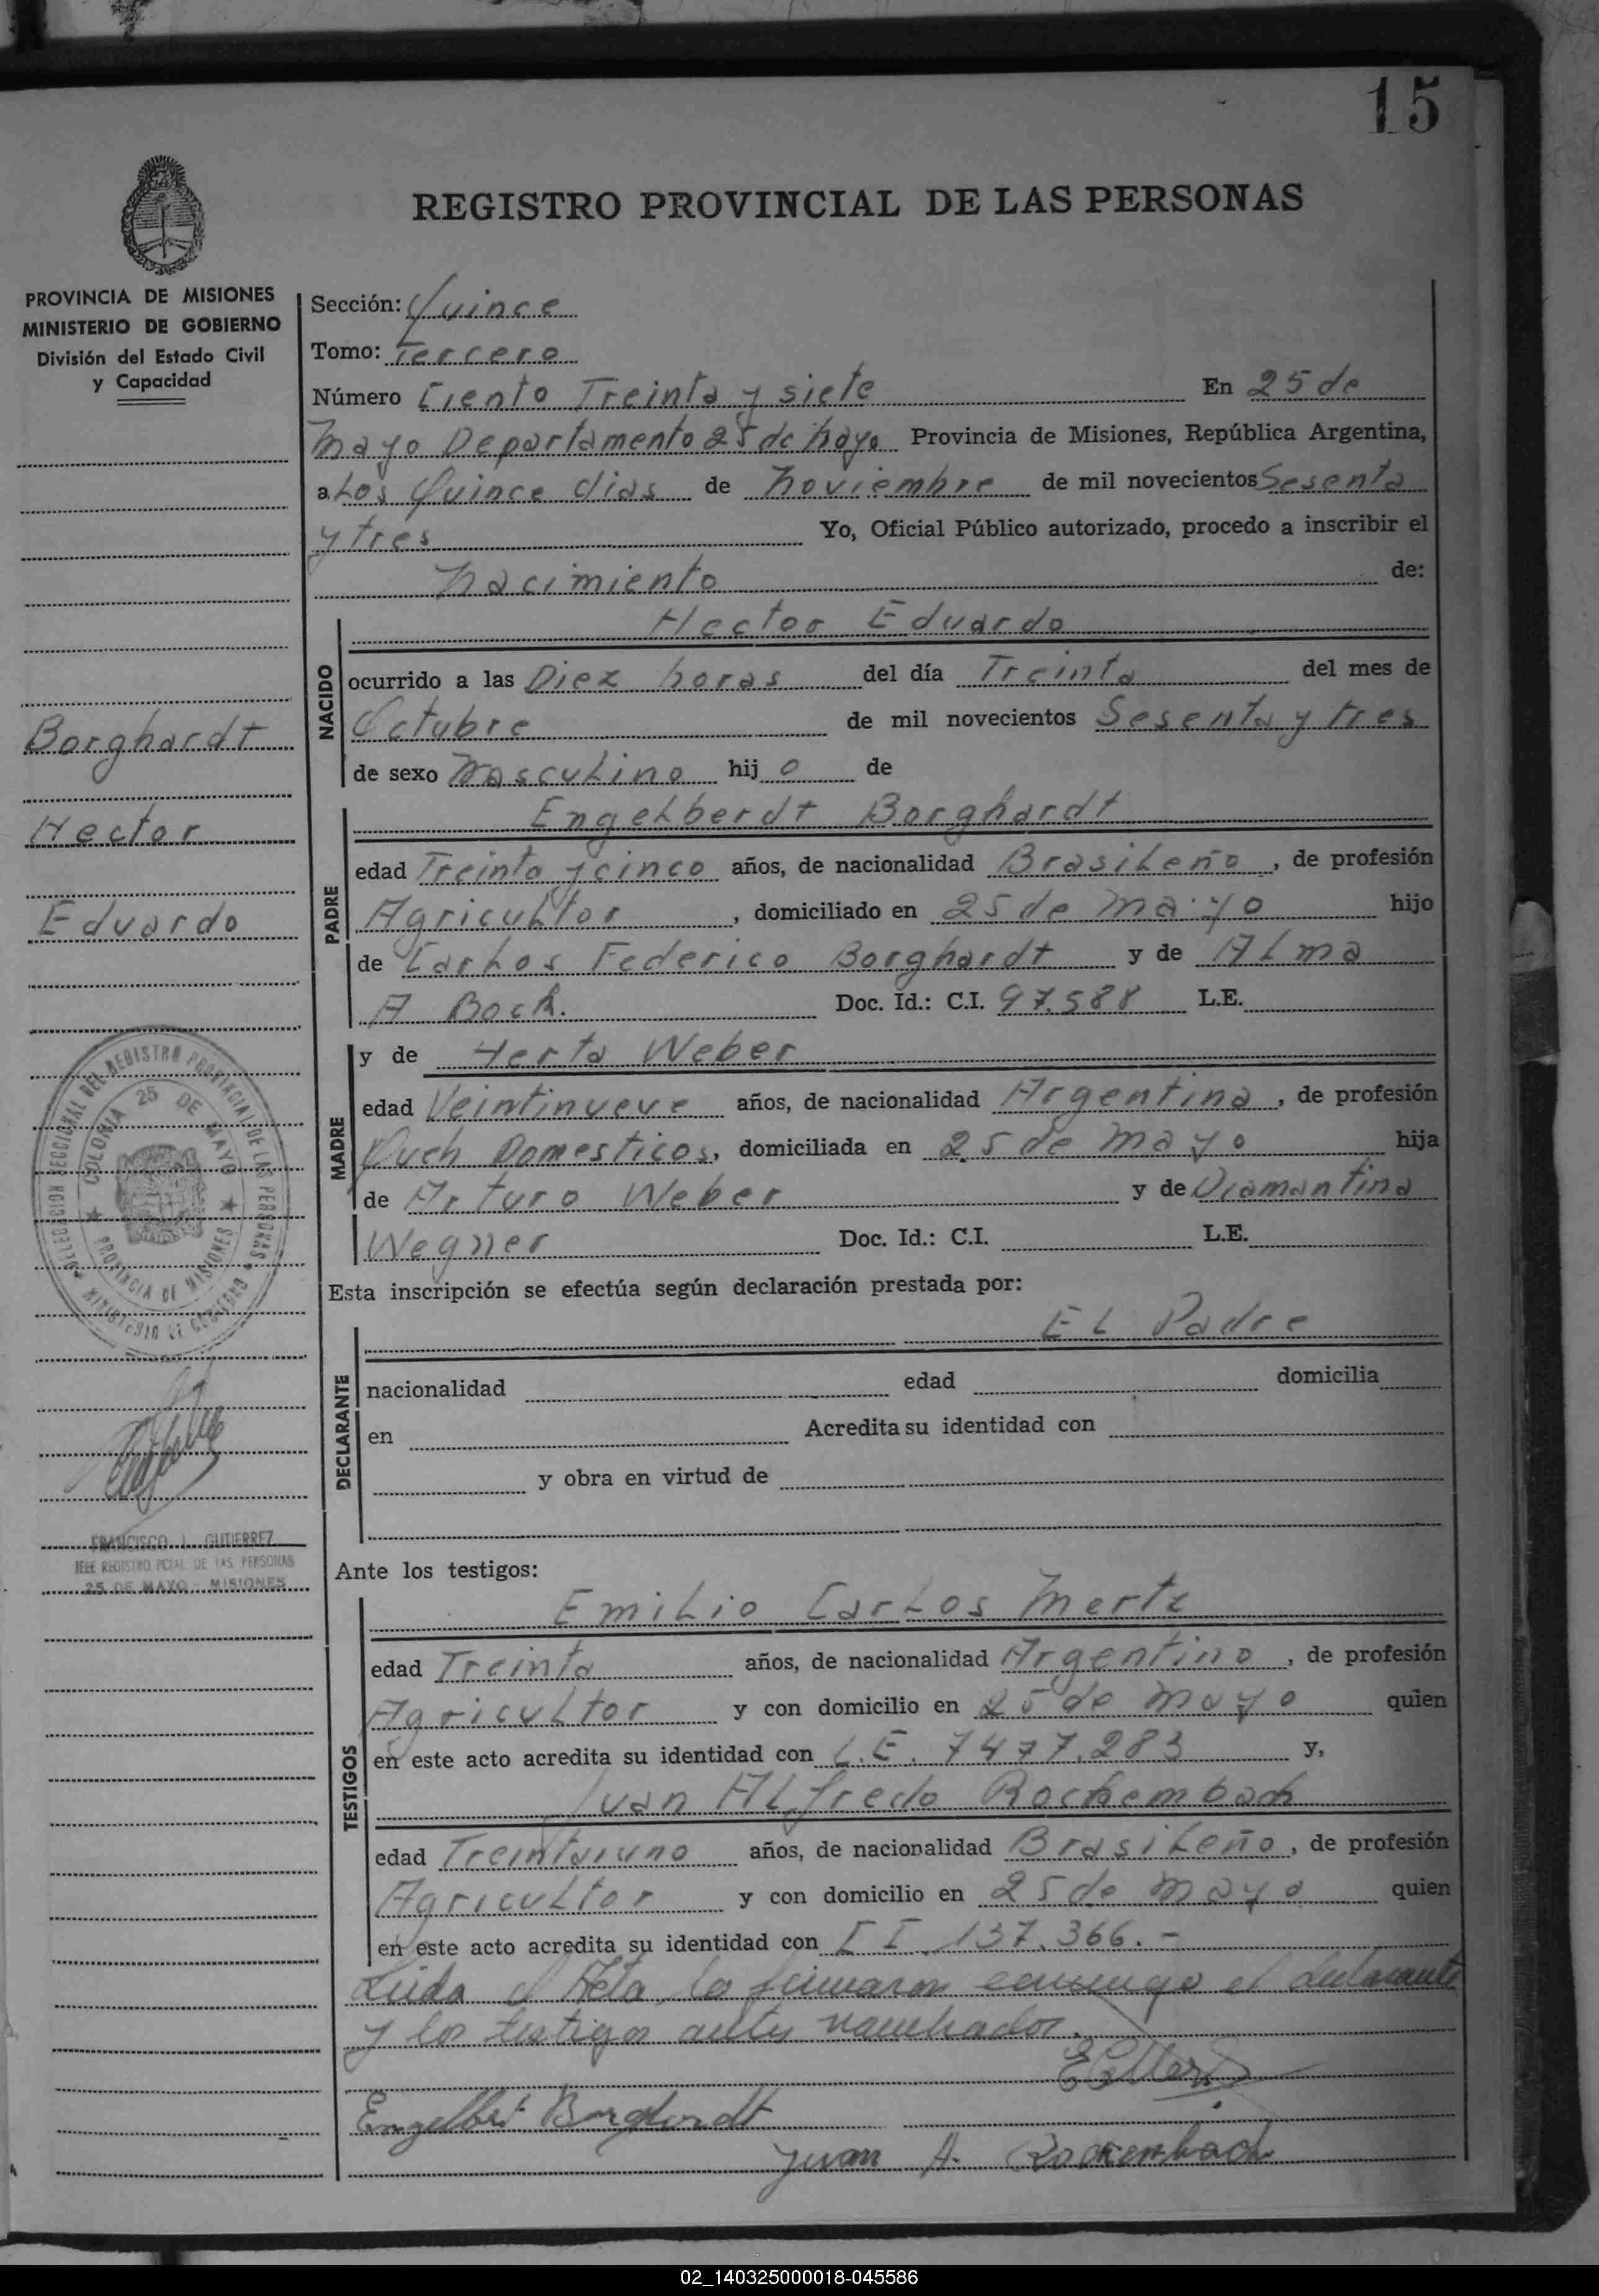 15
REGISTRO PROVINCIAL DE LAS PERSONAS
PROVINCIA DE MISIONES
MINISTERIO DE GOBIERNO
División del Estado Civil
y Capacidad
Borghardt
Hector
Eduardo
DELEGACION SECCIONAL DEL REGISTRO PROVINCIAL DE LAS PERSONAS
MINISTERIO DE GOBIERNO
COLONIA 25 DE MAYO
PROVINCIA DE MISIONES
FRANCISCO GUTIERREZ
JEFE REGISTRO PCIAL DE LAS PERSONAS
25 DE MAYO - MISIONES
Sección: Quince
Tomo: Tercero
Número Ciento Treinta y siete En 25 de
Mayo Departamento 25 de Mayo Provincia de Misiones, República Argentina,
a Los Quince dias de Noviembre de mil novecientos Sesenta
y tres Yo, Oficial Público autorizado, procedo a inscribir el
Nacimiento de:
NACIDO
Hector Eduardo
ocurrido a las Diez horas del día Treinta del mes de
Octubre de mil novecientos Sesenta y tres
de sexo Masculino hijo de
PADRE
Engelberdt Borghardt
edad Treinta y cinco años, de nacionalidad Brasileño, de profesión
Agricultor, domiciliado en 25 de Mayo hijo
de Carlos Federico Borghardt y de Alma
A Bock. Doc. Id.: C.I. 97.588 L.E.
MADRE
y de Herta Weber
edad Veintinueve años, de nacionalidad Argentina, de profesión
Queh Domesticos, domiciliada en 25 de Mayo hija
de Arturo Weber y de Diamantina
Wegner Doc. Id.: C.I. L.E.
Esta inscripción se efectúa según declaración prestada por:
DECLARANTE
El Padre
nacionalidad edad domicilia
en Acredita su identidad con
y obra en virtud de
Ante los testigos:
TESTIGOS
Emilio Carlos Mertz
edad Treinta años, de nacionalidad Argentino, de profesión
Agricultor y con domicilio en 25 de Mayo quien
en este acto acredita su identidad con L.E. 7477.283 y,
Juan Alfredo Rockembach
edad Treintaiuno años, de nacionalidad Brasileño, de profesión
Agricultor y con domicilio en 25 de Mayo quien
en este acto acredita su identidad con C I 137.366.-
Leida el Acta la firmaron conmigo el declarante
y los testigos antes nombrados.
Engelbert Borghardt
Juan A. Rockenbach
02_140325000018-045586